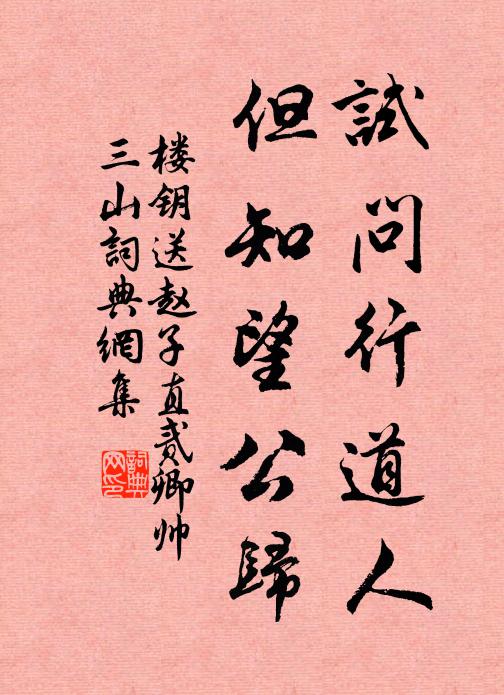 試問行道人
但知望公歸
楼钥送赵子直贰卿帅
三山詞典網集
詞典網印